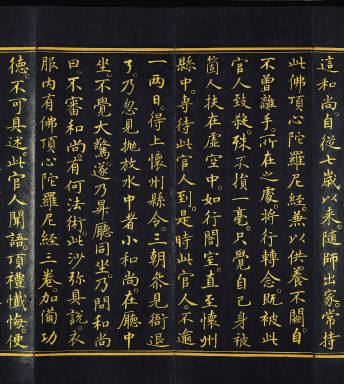 這和尚自從七歲以来随師出家常持
此佛頂心陀羅尼經兼以供養不闕自
不曾離手所在之處将行轉念既被此
官人致殺殊不損一毫只覺自己身被
箇人扶在虚空中如行闇室直至懷州
縣中専待此官人到是時此官人不逾
一兩日得上懷州縣令三朝叅見衙退
了乃忽見抛放水中者小和尚在廳中
坐不覺大驚遂乃昇廳同坐乃問和尚
曰不審和尚有何法術此沙弥具說衣
服内有佛頂心陀羅尼經三卷加備功
德不可具述此官人聞語頂禮懺悔便